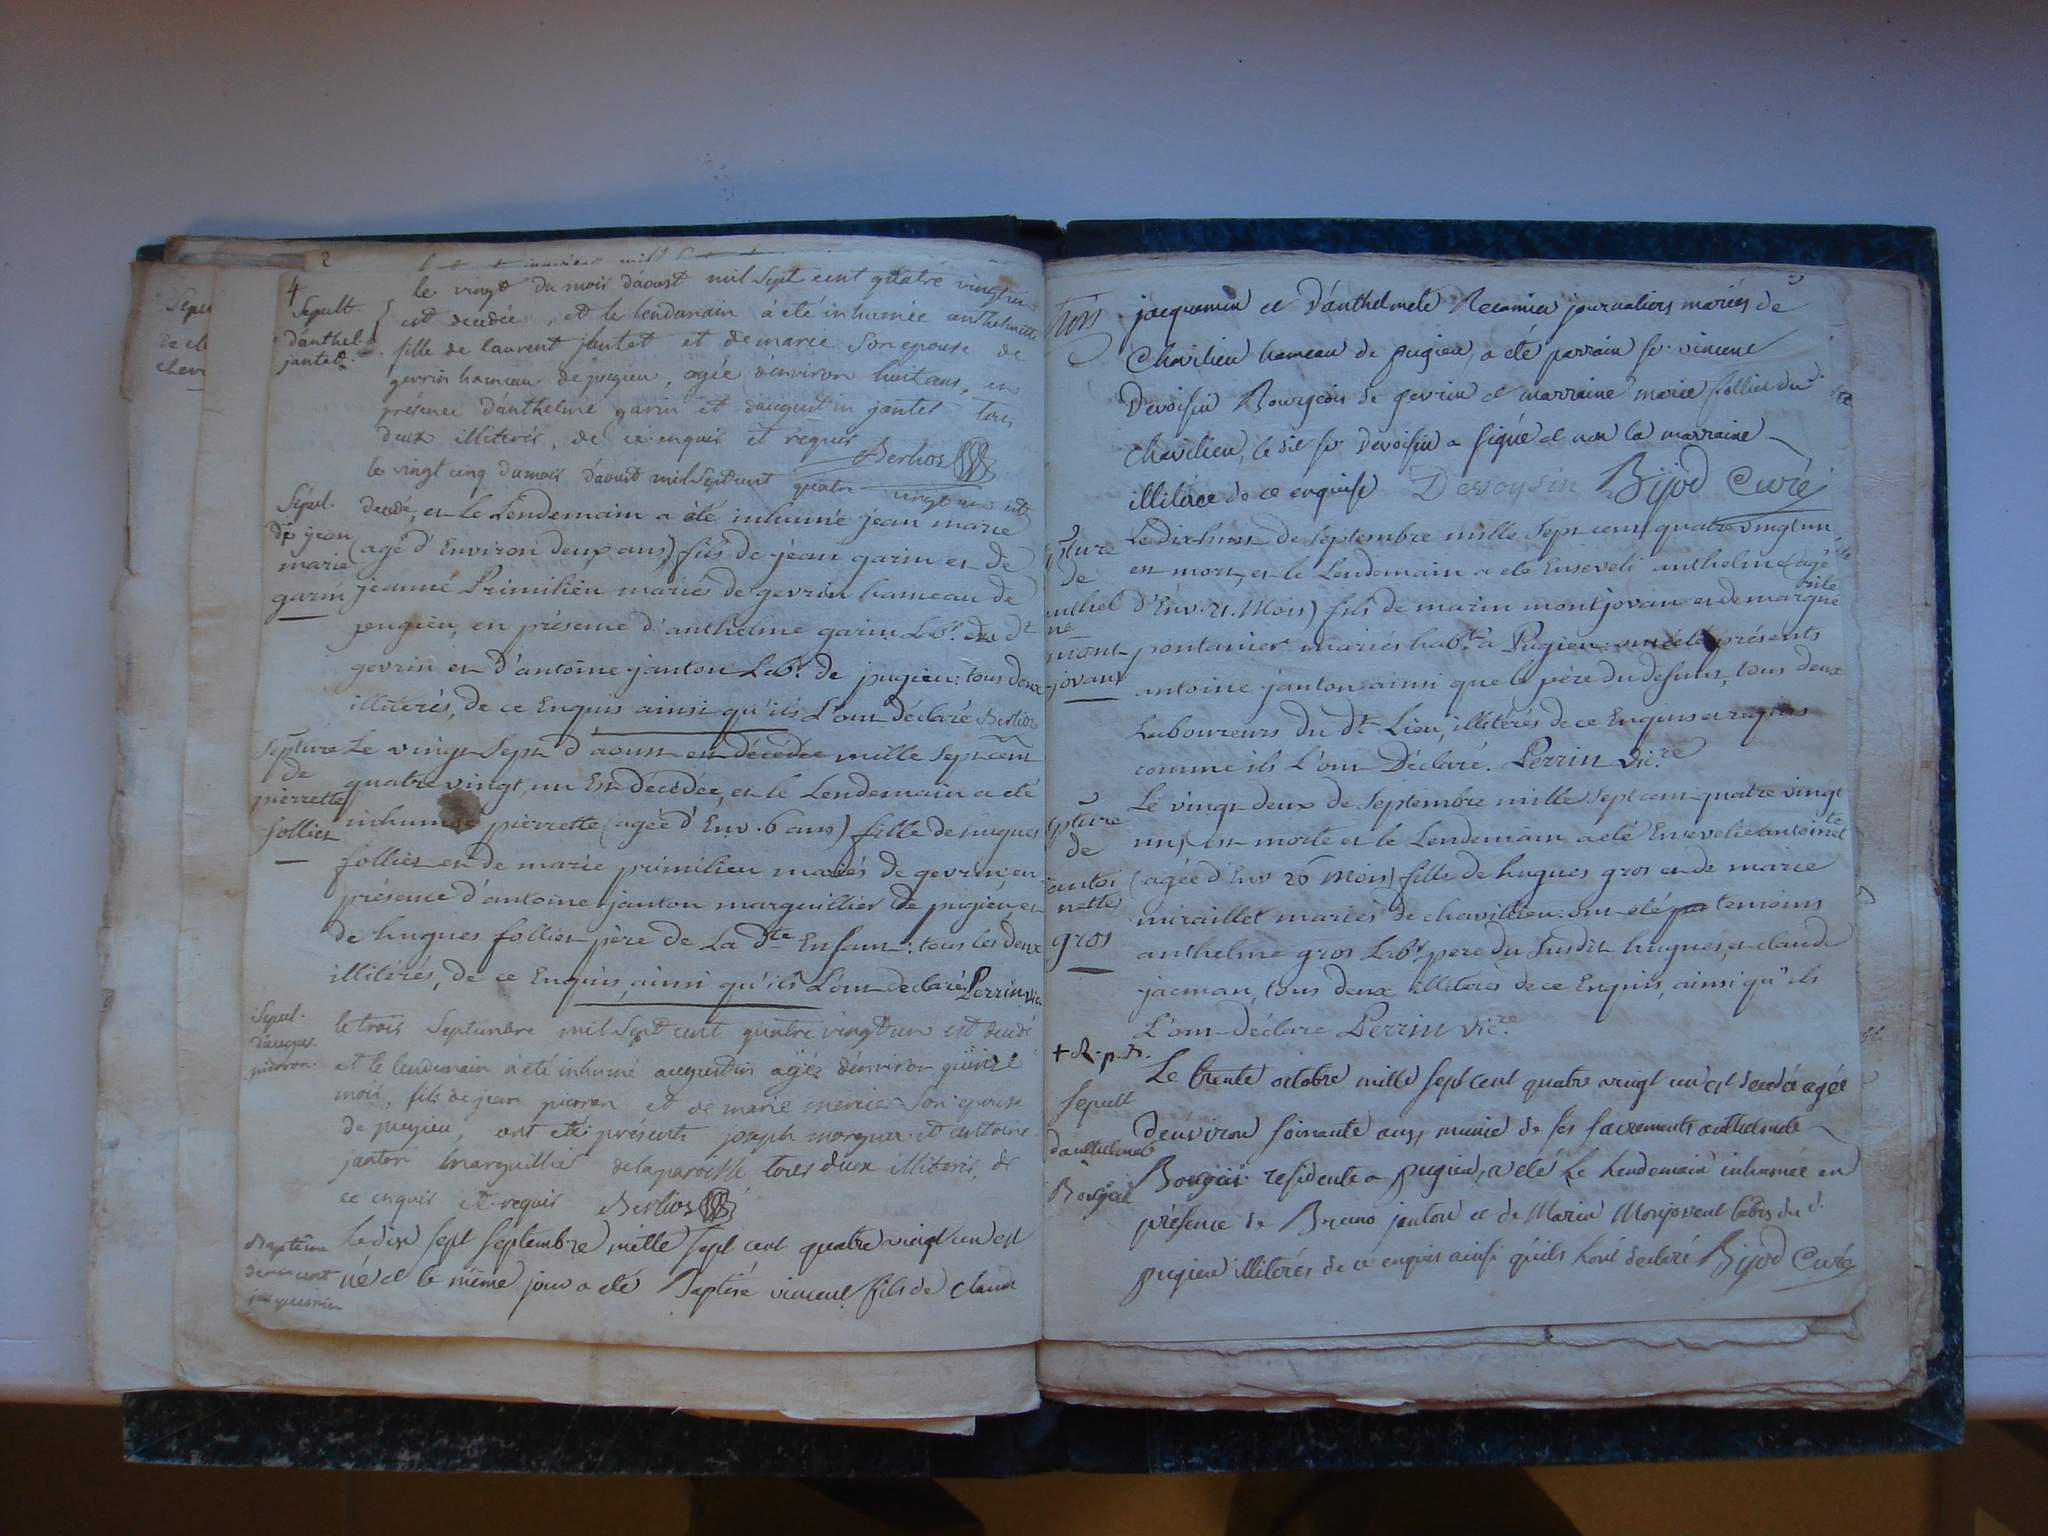 4
Sepult.
d'anthel.
jantet.
le vingt du mois d'aoust mil sept cent quatre vingt un
est decedée, et le lendemain à été inhumée anthelmette
fille de laurent jantet et de marie son epouse de
gevrin hameau de pugieu, agée d'environ huit ans, en
présence d'anthelme garin et d'augustin jantet tous
deux illiterés, de ce enquis et requis Berlios
Sépul.
de jean
marie
garin
le vingt cinq du mois d'aoust mil sept cent quatre vingt un est
decedé, et le Lendemain a été inhumé jean marie
(agé d'Environ deux ans) fils de jean garin et de
jeanne Primilieu mariés de gevrin hameau de
peugieu, en présence d'anthelme garin Labr. du dt
gevrin et d'antoine janton Labr. de pugieu: tous deux
illiterés, de ce Enquis ainsi qu'ils L'ont déclaré Berlios
Septure
de
pierrette
follier
Le vingt Sept d'aoust est décédée mille Sept cent
quatre vingt, un Est décédée, et le Lendemain a eté
inhumée pierrette (agée d'Env. 6 ans) fille de hugues
follier et de marie primilieu mariés de gevrin: en
présence d'antoine janton marguillier de pugieu, et
de hugues follier père de La dte Enfant: tous les deux
illitérés, de ce Enquis, ainsi qu'ils L'ont declaré Perrin vic.
Sepul.
d'augus.
pierron.
le trois Septembre mil Sept cent quatre vingt un est decedé
et le lendemain a été inhumé augustin agéz d'environ quinze
mois, fils de jean pierron et de marie mercier son epouse
de pugieu, ont eté présents joseph morgue et antoine
janton marguillier de la paroisse tous deux illiterés, de
ce enquis et requis Berlios
Baptême
de vincent
jacquemin
Le dix sept septembre mille sept cent quatre vingt un est
né et le même jour a eté Baptisé vincent fils de claude
trois
jacquemin et d'anthelmete Recamier journaliers mariés de
Chavilieu hameau de pugieu, a été parrain sr. vincent
Devoisin Bourgeois de gevrin et marraine marie follier du d.
Chavilieu, le dit sr Devoisin a signé et non la marraine
illiterée de ce enquise Devoysin Bijod Curé
de
anthel
me
mont-
jovant
Le dix-huit de Septembre mille Sept cent quatre vingt un
est mort, et le Lendemain a eté Enseveli anthelme (agé
d'Env. 21. Mois) fils de marin montjovan et de marguerite
pontanier mariés habts. à Pugieu: ont eté présents
antoine janton ainsi que le père du defunt, tous deux
Laboureurs du dt. Lieu, illitérés de ce Enquis et requis
comme ils L'ont Déclaré. Perrin vic.re
de
antoi
nette
gros
Le vingt deux de Septembre mille Sept cent quatre vingt
un, est morte et le Lendemain a eté Ensevelie antoinette
(agée d'Env 26 Mois) fille de hugues gros et de marie
miraillet mariés de chavillieu: ont eté temoins
anthelme gros Labr. pere du Susdit hugues, et claude
jacman, tous deux illiterés de ce Enquis, ainsi qu'ils
L'ont Déclaré Perrin vic.re
+ R. p. D.
Sepult
d'anthelmete
Bougeis
Le trente octobre mille sept cent quatre vingt un est decedée agée
d'environ soixante ans, munie de ses sacrements anthelmete
Bougeis residente a pugieu, a eté le Lendemain inhumée en
présence de Bruno janton et de Marin Monjovent labrs du d.
pugieu illiterés de ce enquis ainsi qu'ils l'ont declaré Bijod Curé